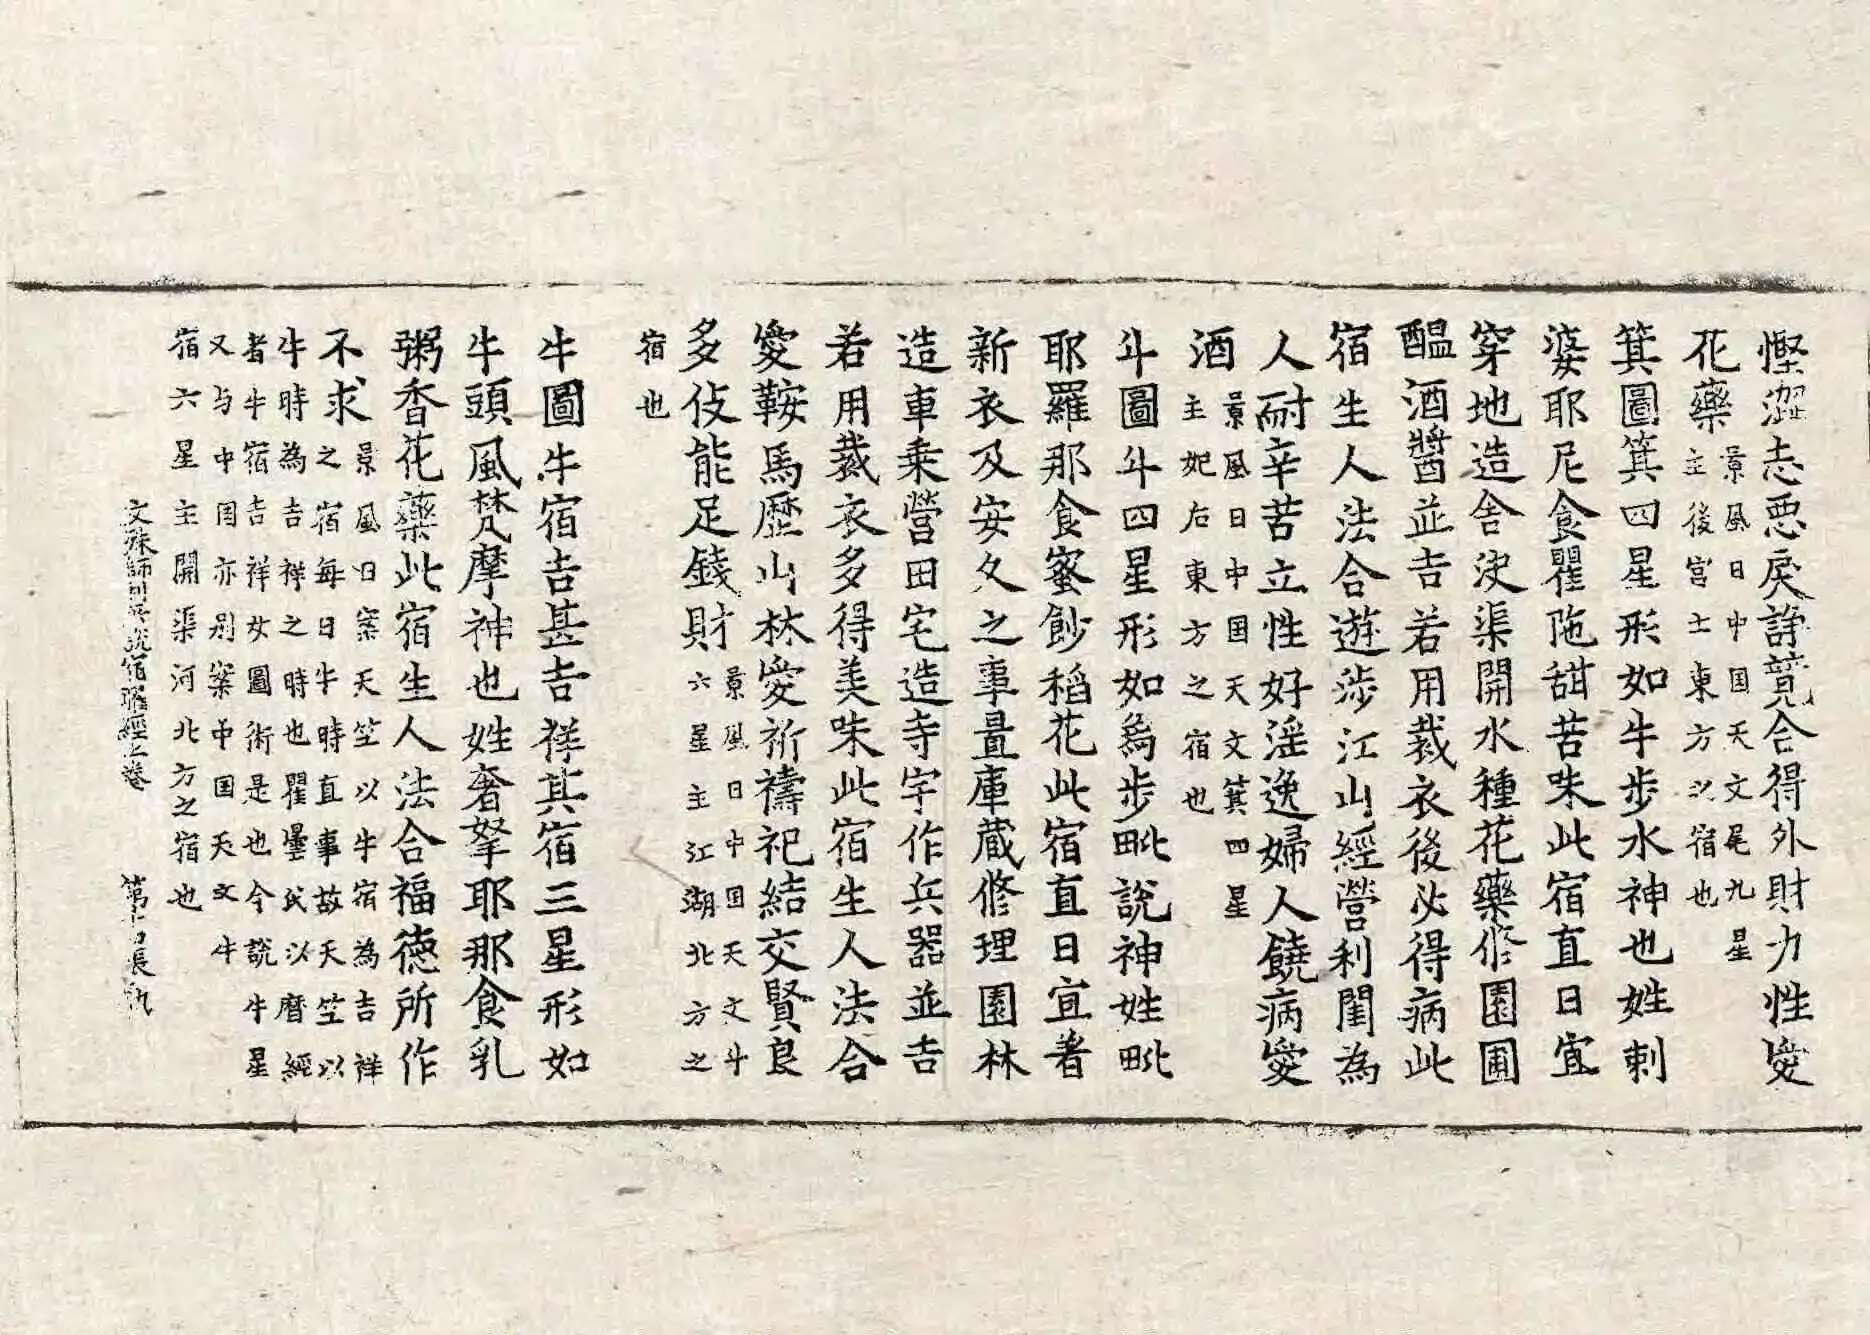 慳澁志悪戾諍競合得外財力性愛
花藥景風日中国天文尾九星
主後宮士東方以宿也
箕圖箕四星形如牛步水神也姓刺
婆耶尼食瞿陁甜苦味此宿直日宜
穿地造舍決渠開水種花藥修園圃
醖酒醬並吉若用裁衣後必得病此
宿生人法合遊涉江山經營利閏為
人耐辛苦立性好淫逸婦人饒病愛
酒景風日中国天文箕四星
主妃后東方之宿也
斗圖斗四星形如爲步毗說神姓毗
耶羅那食蜜麨稻花此宿直日宜著
新衣及安久之事置庫蔵修理園林
造車乗營田宅造寺宇作兵器並吉
若用裁衣多得美味此宿生人法合
愛鞍馬歷山林愛祈禱祀結交賢良
多伎能足錢財景風日中国天文斗
六星主江湖北方之
宿也
牛圖牛宿吉甚吉祥其宿三星形如
牛頭風梵摩神也姓奢拏耶那食乳
粥香花藥此宿生人法合福德所作
不求景風日案天竺以牛宿為吉祥
之宿每日牛時直事故天竺以
牛時為吉祥之時也瞿曇氏以曆經
者牛宿吉祥女圖術是也今說牛星
又与中国亦別案中国天文牛
宿六星主開渠河北方之宿也
文殊師利 說宿曜經上卷 第十 張